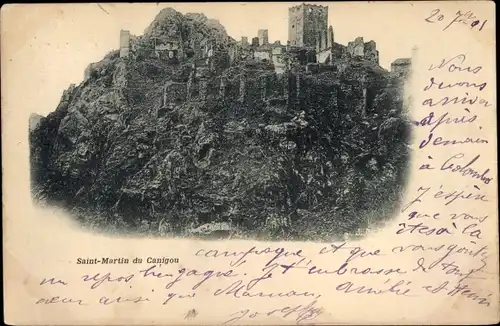 20 7bre 01
Nous
devons
arriver
après
demain
à Colombes
J'espère
que vous
êtes à la
campagne et que vous goûtez
Saint-Martin du Canigou
un repos bien gagné. J'embrasse de tout
coeur ainsi que Maman Amélie et Henri
Joseph